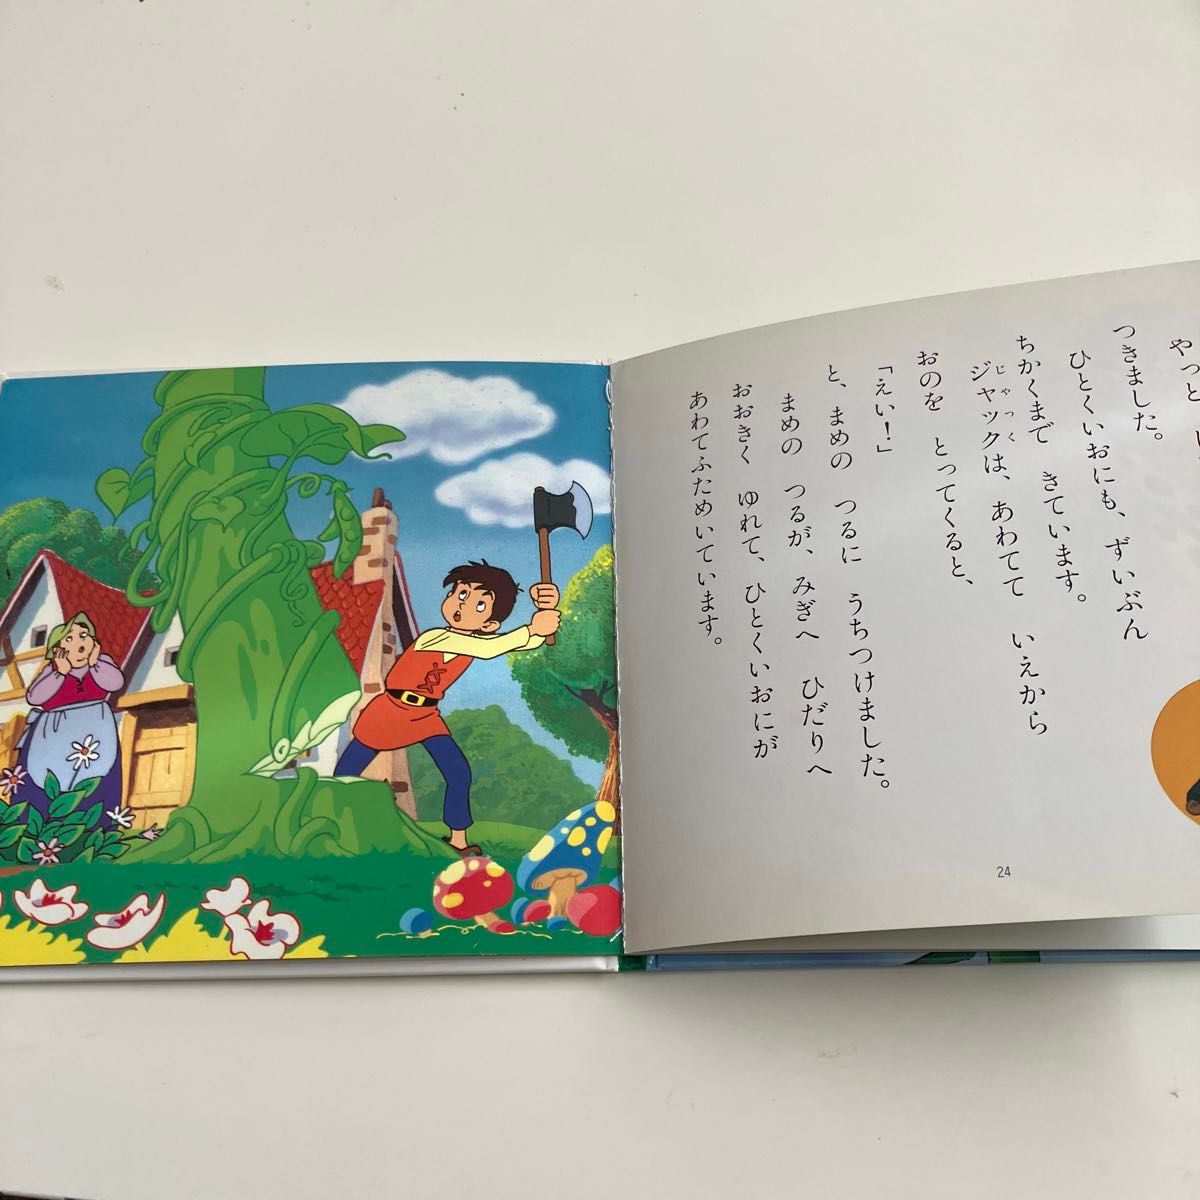 やっと
つきました。
ひとくいおにも、ずいぶん
ちかくまで きています。
じゃっく
ジャックは、あわてて いえから
おのを とってくると、
「えい！」
と、まめの つるに うちつけました。
まめの つるが、みぎへ ひだりへ
おおきく ゆれて、ひとくいおにが
あわてふためいています。
24